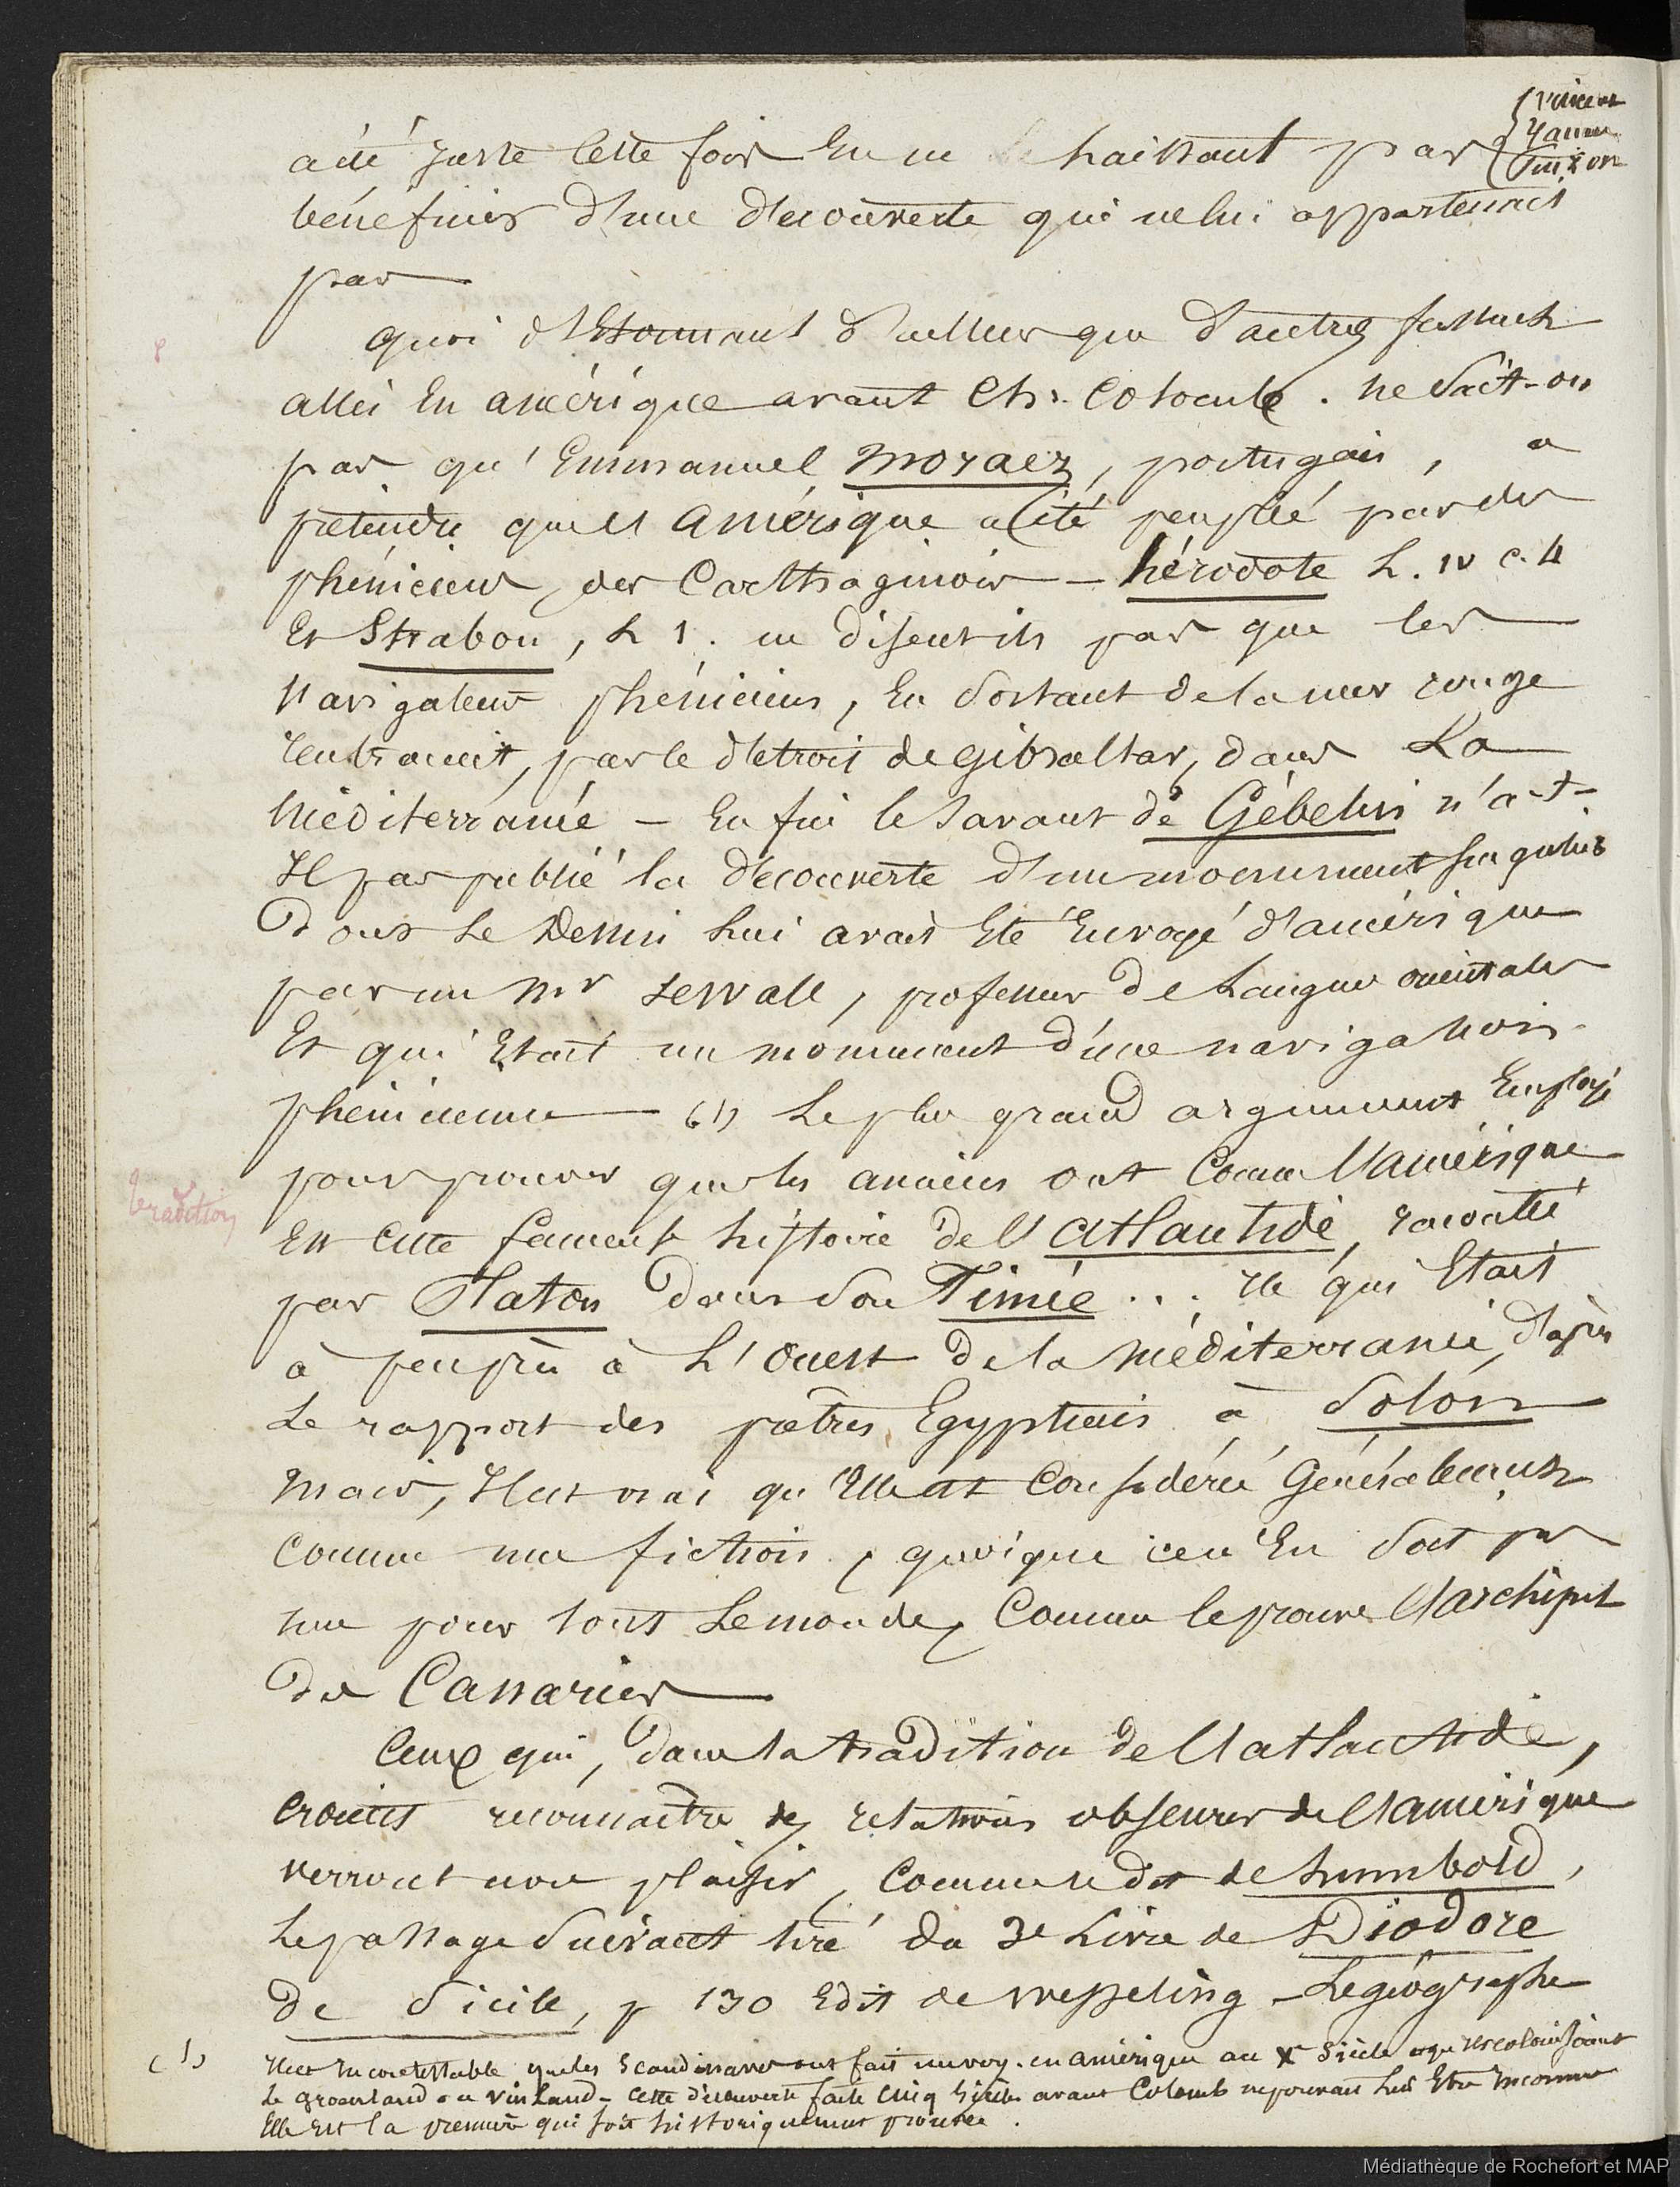 a été juste cette fois en ne le haissant pas
Vincent
Yanne
Pinzon
bénéficier d'une découverte qui ne lui appartenait
pas
quoi d'Etonnant d'ailleurs que d'autres fussent
allés En amérique avant Ch. Colomb. ne sait-on
pas qu'Emmanuel moraez, portugais, a
prétendu que l'amérique a été peuplée par des
phéniciens, des Carthaginois — hérodote L. IV c. 4
Et Strabon, L 1. ne disent ils pas que les
navigateurs phéniciens, En sortant de la mer rouge
rentraient, par le détroit de gibraltar, dans La
méditerranée — Enfin le savant de Gébelin n'a-t-
Il pas publié la découverte d'un monument singulier
Dont Le Dessin Lui avait Eté Envoyé d'amérique
par un Mr Sewall, professeur De Langues orientales
Et qui Etait un monument d'une navigation
phénicienne — (1) Le plus grand argument Employé
pour prouver que les anciens ont Connu l'amérique
tradition
Est Cette fameuse histoire de l'atlantide, racontée
par Platon Dans Son Timée ... Ile qui Etait
à peu près à L'Ouest De la Méditerranée, d'après
Le rapport des prêtres Egyptiens à Solon
mais, Il est vrai qu'Elle est Considérée Généralement
comme une fiction, quoique ceci En soit pas
une pour tout Le monde, Comme le prouve l'archipel
des Canaries —
Ceux qui, dans la tradition de l'atlantide,
croient reconnaître des relations obscures de l'amérique
verront avec plaisir, Comme le dit de humbold,
Le passage Suivant tiré du 3e Livre de Diodore
De Sicile, p 130 Edit de Wesseling — Le géographe
(1) Il est incontestable que les Scandinaves ont fait un voy. en amérique au X Siècle et qu'ils colonisèrent
Le groenland ou vinland — Cette découverte faite cinq siècles avant Colomb ne pouvait Lui Etre Inconnue
Elle est la première qui soit historiquement prouvée.
Médiathèque de Rochefort et MAP